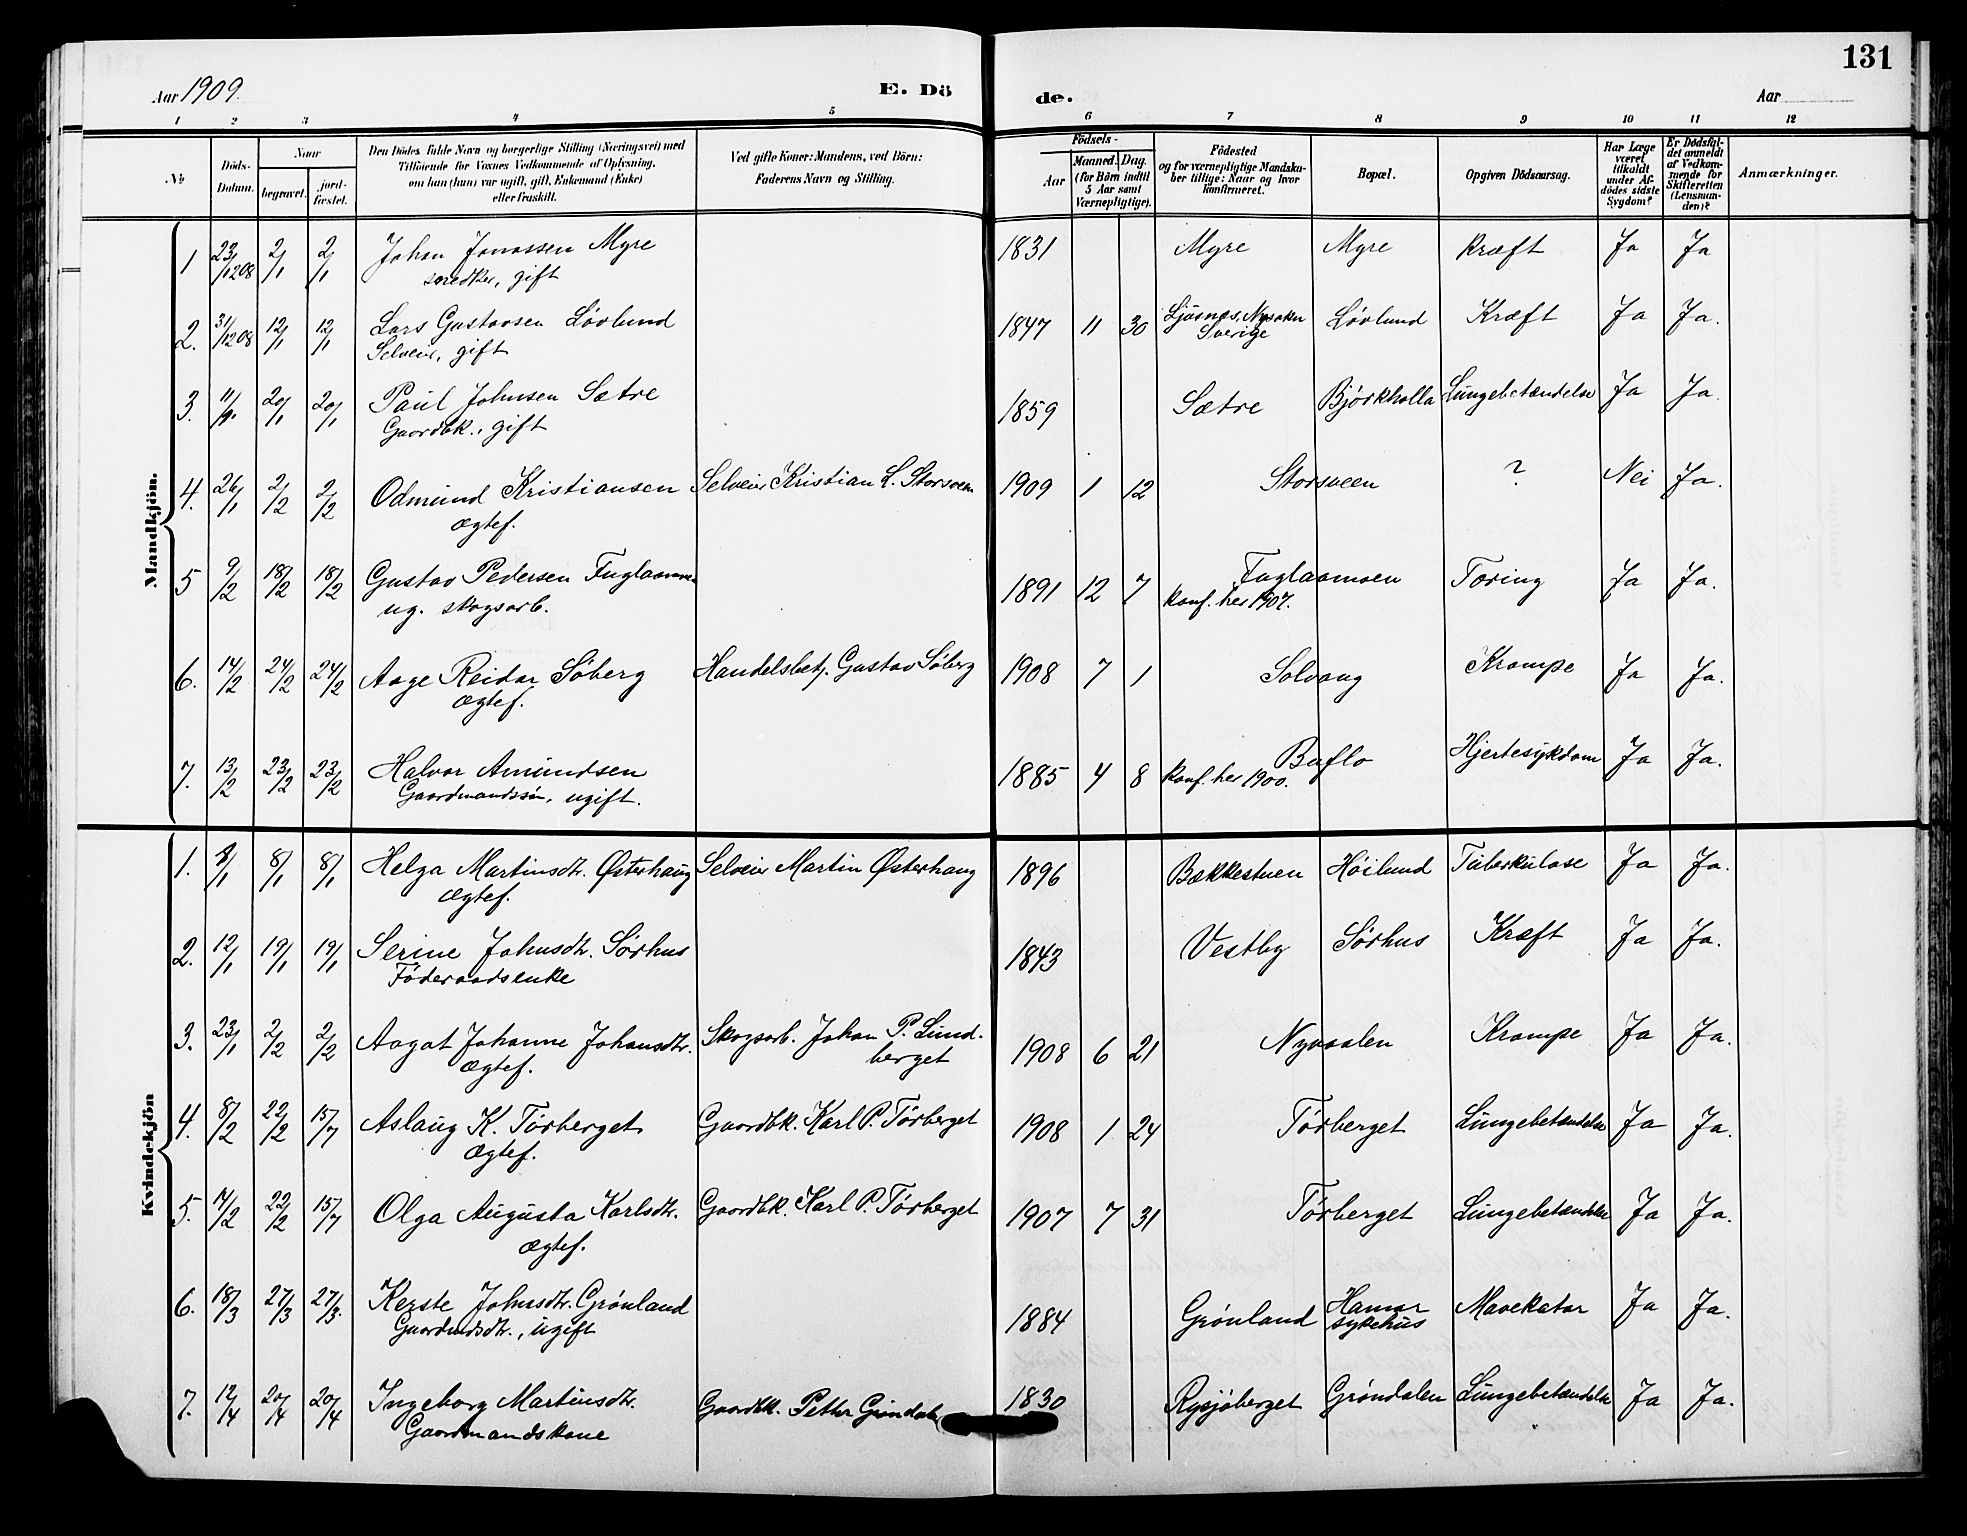 131
Aar 1909.
E. Dö de.
Aar
1 2 3 4 5 6 7 8 9 10 11 12
№
Döds-Datum.
Naar
begravet.
jord-fæstet.
Den Dödes fulde Navn og borgerlige Stilling (Næringsvei) med
Tilföiende for Voxnes Vedkommende af Oplysning,
om han (hun) var ugift, gift, Enkemand (Enke)
eller fraskilt.
Ved gifte Koner: Mandens, ved Börn:
Faderens Navn og Stilling.
Födsels-
Aar
Maaned. Dag.
(for Börn indtil
5 Aar samt
Værnepligtige).
Födested
og for værnepligtige Mandska-
ber tillige: Naar og hvor
konfirmeret.
Bopæl.
Opgiven Dödsaarsag.
Har Læge
været
tilkaldt
under Af-
dödes sidste
Sygdom?
Er Dödsfal-
det anmeldt
af Vedkom-
mende for
Skifteretten
(Lensman-
den)?
Anmærkninger.
Mandkjön.
1 23/12 08 2/1 2/1 Johan Jonassen Myre 1831 Myre Myre Kræft Ja Ja
gift
2. 31/12 08 12/1 12/1 Lars Gustavsen Lövlund 1847 11 30 Lövlund Kræft Ja Ja.
Selveier, gift Sverige
3. 11/1 20/1 20/1 Paul Johnsen Sætre 1859 Sætre Björkholla Lungebetændelse Ja Ja.
Gaardbk., gift
4. 26/1 2/2 2/2 Odmund Kristiansen Selveier Kristian L. Storsveen 1909 1 12 Storsveen ? Nei Ja.
Ægtef.
5 9/2 18/2 18/2 Gustav Pedersen Fuglaamoen 1891 12 7 Fuglaamoen Tæring Ja Ja.
ug. skogsarb. konf. her 1907.
6. 14/2 24/2 24/2 Aage Reidar Söberg Handelsbetj. Gustav Söberg 1908 7 1 Solvang Krampe Ja Ja.
Ægtef.
7. 13/2 23/2 23/2 Halvor Amundsen 1885 4 8 Buflo Hjertesykdom Ja Ja.
Gaardmandssön, ugift. konf. her 1900.
Kvindekjön
1. 8/1 8/1 Helga Martinsdtr. Østerhaug Selveier Martin Østerhaug 1896 Bækkestuen Höilund Tuberkulose Ja Ja.
Ægtef.
2. 12/1 19/1 19/1 Serine Johnsdtr. Sörhus 1843 Vestby Sörhus Kræft Ja Ja.
Föderaadsenke
3. 23/1 2/2 2/2 Aagot Johanne Johansdtr. Skogsarb. Johan P. Lund- 1908 6 21 Nyvaalen Krampe Ja Ja.
Ægtef. berget
4. 8/2 22/2 15/7 Aslaug K. Törberget Gaardbk. Karl P. Törberget 1908 1 24 Törberget Lungebetændelse Ja Ja.
Ægtef.
5. 22/2 15/7 Olga Augusta Karlsdtr. Gaardbk. Karl P. Törberget 1907 7 31 Törberget Lungebetændelse Ja Ja.
Ægtef.
6. 18/3 27/3 27/3. Kerste Johnsdtr. Grönland 1884 Grönland Hamar Mavekatar Ja Ja.
Gaardmdsdtr., ugift sykehus
7. 12/4 20/4 20/4 Ingeborg Martinsdtr. Gaardbk. Petter Gröndalen 1830 Rysjöberget Gröndalen Lungebetændelse Ja Ja.
Gaardmandskone